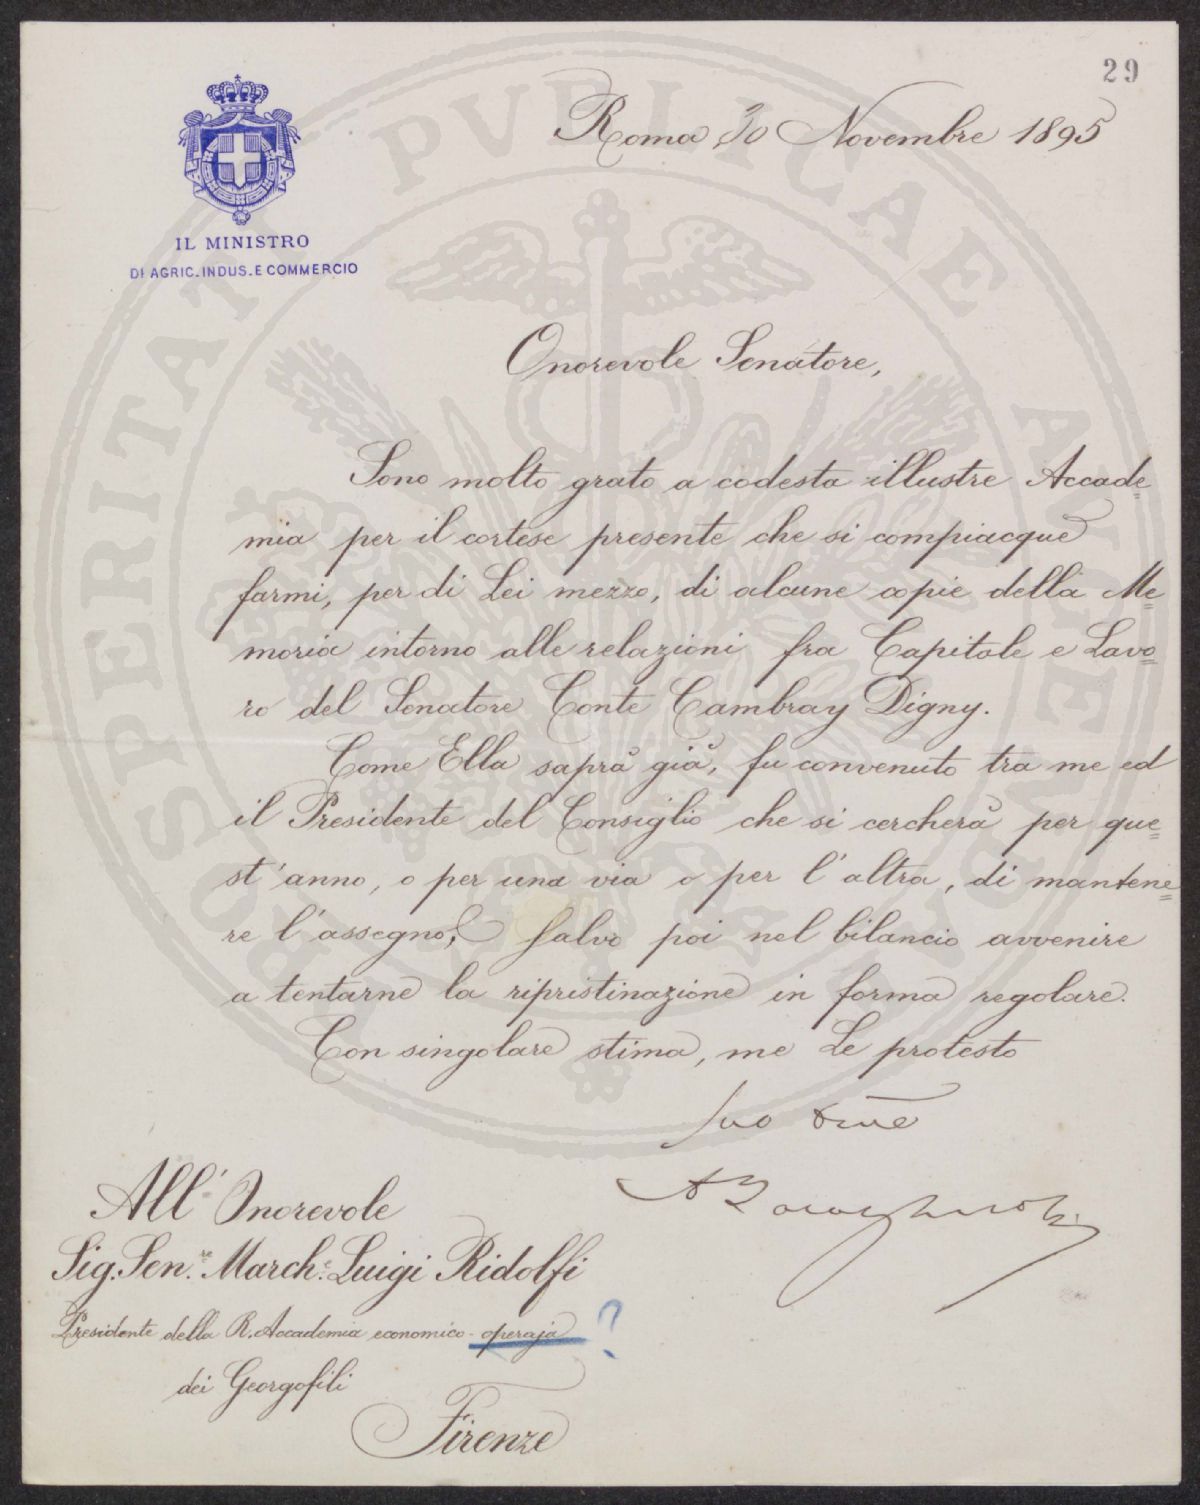 29
Roma 30 Novembre 1895
IL MINISTRO
DI AGRIC. INDUS. E COMMERCIO
Onorevole Senatore,
Sono molto grato a codesta illustre Accade=
mia per il cortese presente che si compiacque
farmi, per di Lei mezzo, di alcune copie della Me=
moria intorno alle relazioni fra Capitale e Lavo=
ro del Senatore Conte Cambray Digny.
Come Ella saprà già, fu convenuto tra me ed
il Presidente del Consiglio che si cercherà per que=
st'anno, o per una via o per l'altra, di mantene=
re l'assegno; salvo poi nel bilancio avvenire
a tentarne la ripristinazione in forma regolare.
Con singolare stima, me Le protesto
Suo
All'Onorevole
Sig. Sen.re March.e Luigi Ridolfi
Presidente della R. Accademia economico-operaja ?
dei Georgofili
Firenze
PROSPERITATI PVBLICAE AVGENDAE